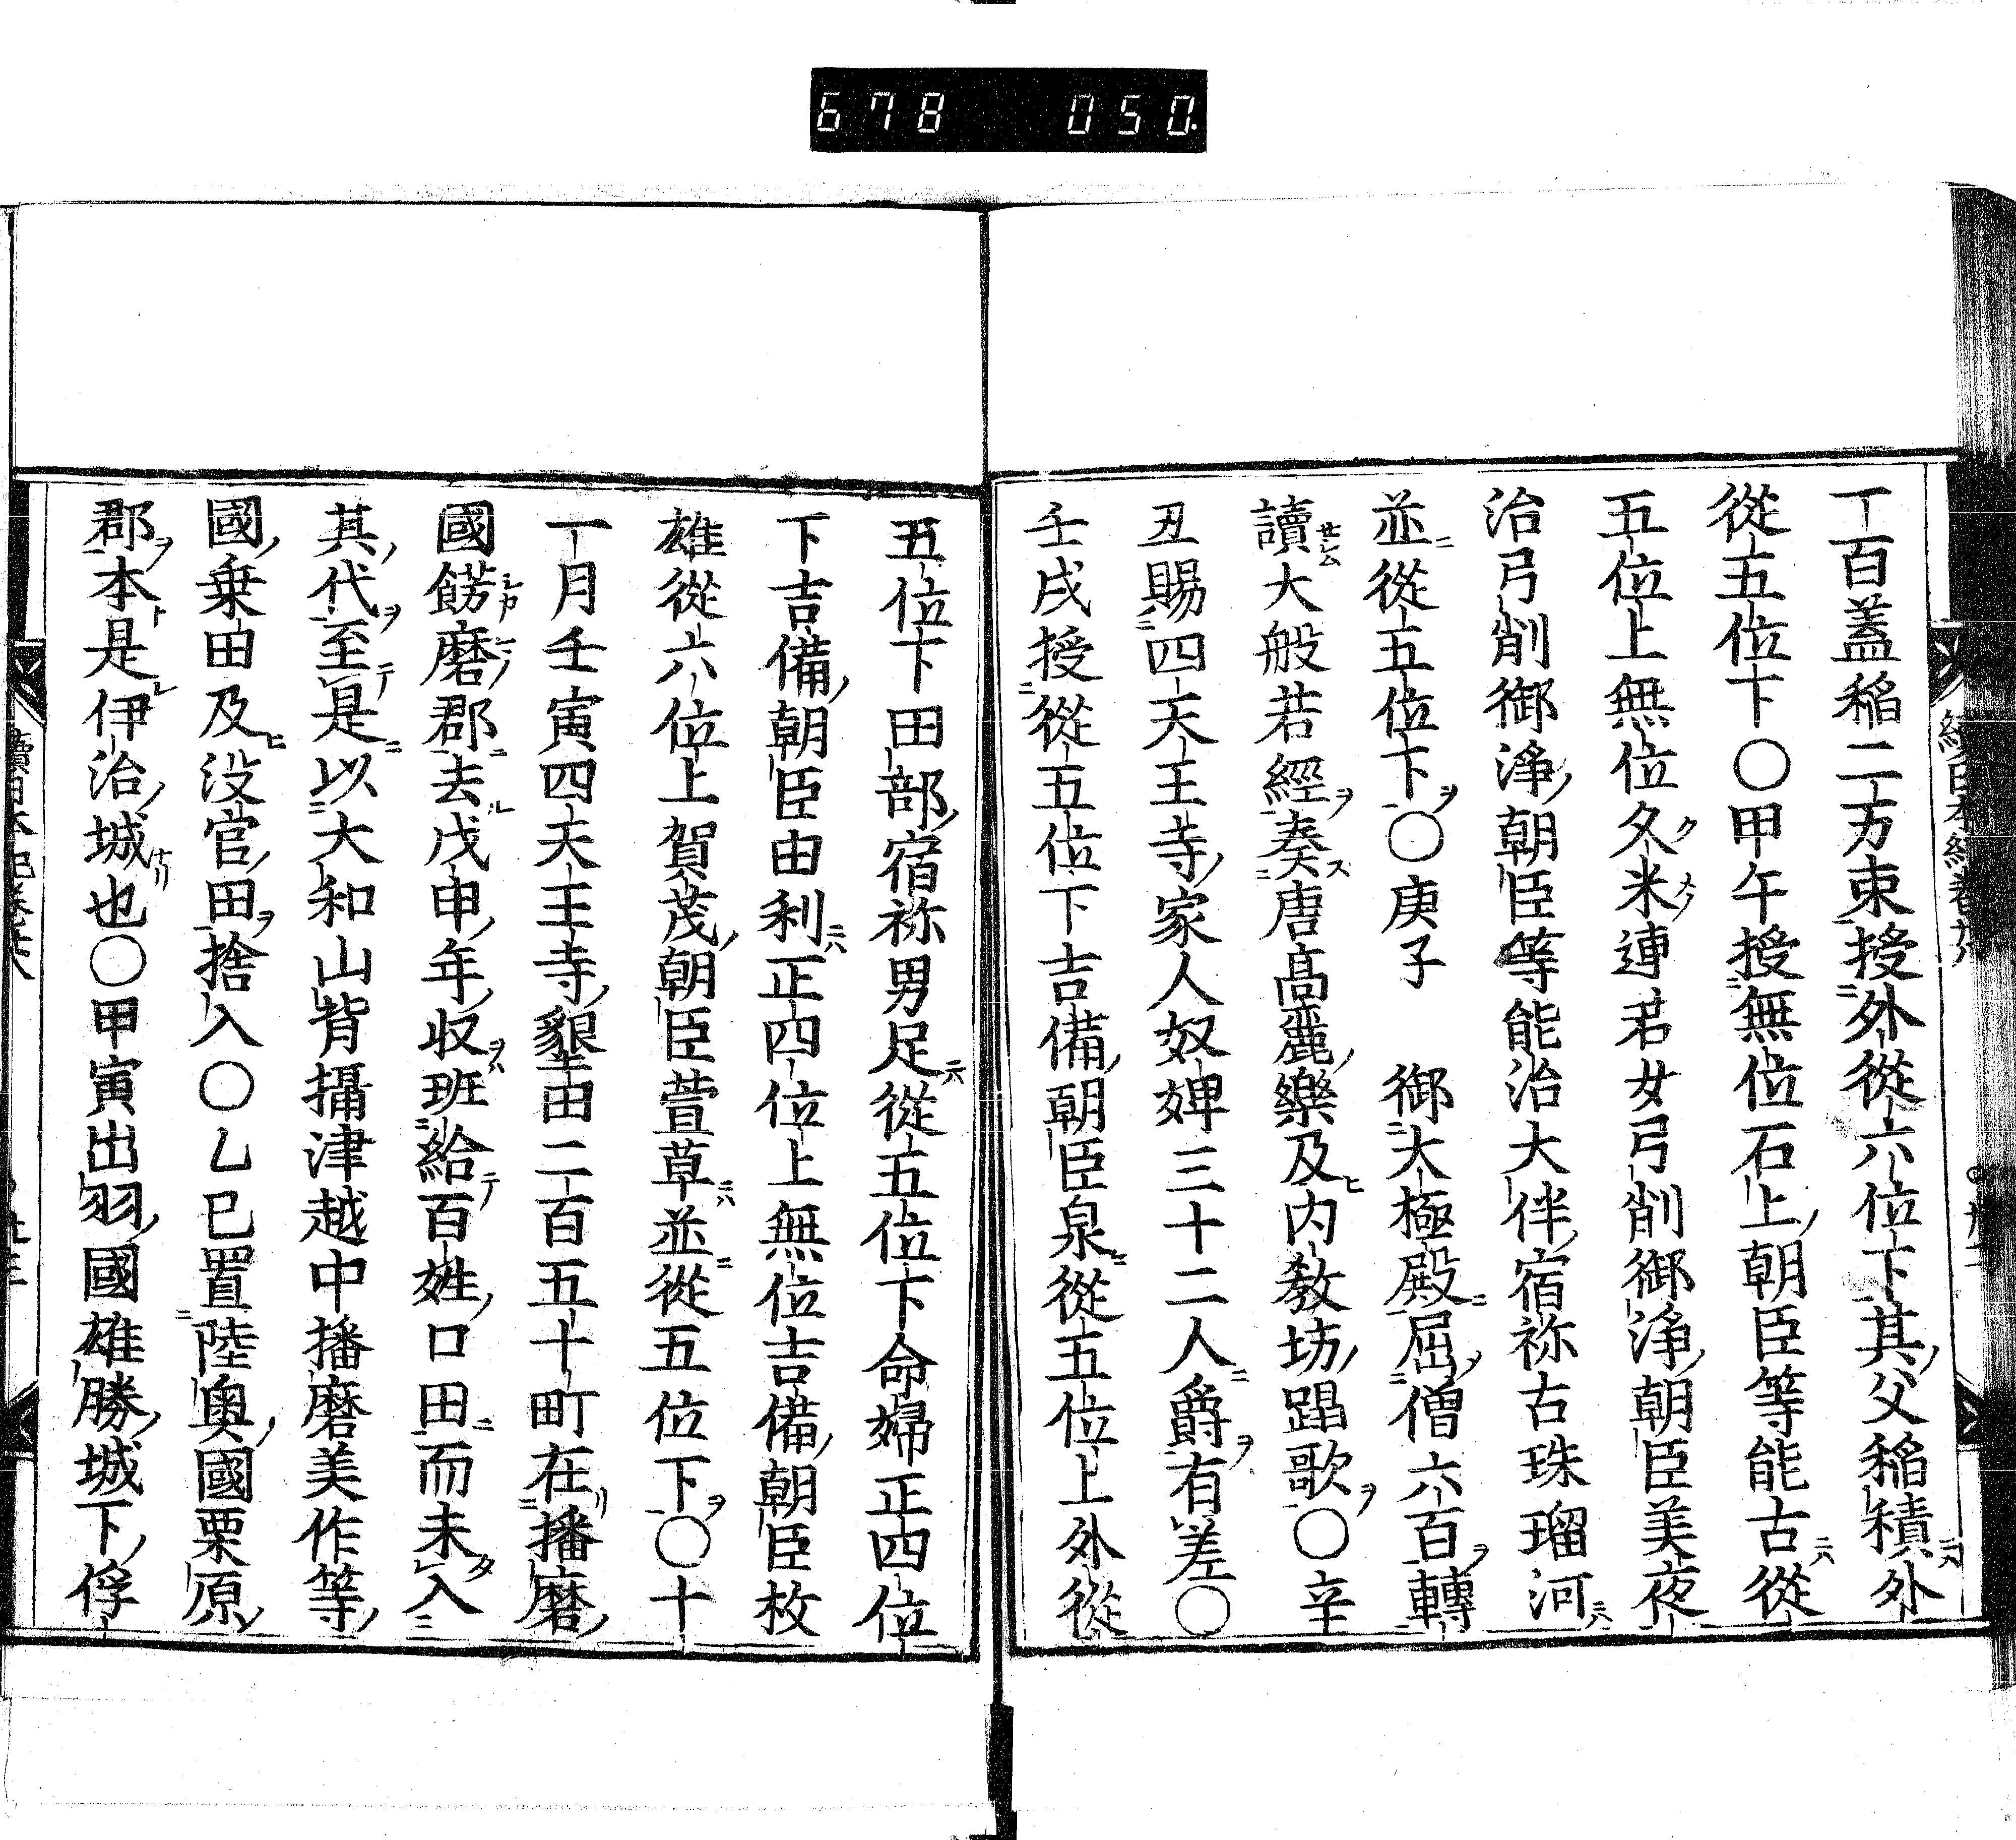 678 050.
丁百蓋稲二万束授外從六位下其父稲積外
從五位下〇甲午授無位石上朝臣等能古從
五位上無位久米連若女弓削御浄朝臣美夜
治弓削御浄朝臣等能治大伴宿祢古珠瑠河
並從五位下〇庚子 御大極殿屈僧六百轉
讀大般若經奏唐髙麗樂及内教坊蹋歌〇辛
丑賜四天王寺家人奴婢三十二人爵有差〇
壬戌授從五位下吉備朝臣泉從五位上外從
五位下田部宿祢男足從五位下命婦正四位
下吉備朝臣由利正四位上無位吉備朝臣枚
雄從六位上賀茂朝臣萱草並從五位下〇十
一月壬寅四天王寺墾田二百五十町在播磨
國餝磨郡去戊申年収班給百姓口田而未入
其代至是以大和山背攝津越中播磨美作等
國乗田及没官田捨入〇乙巳置陸奥國栗原
郡本是伊治城也〇甲寅出羽國雄勝城下俘